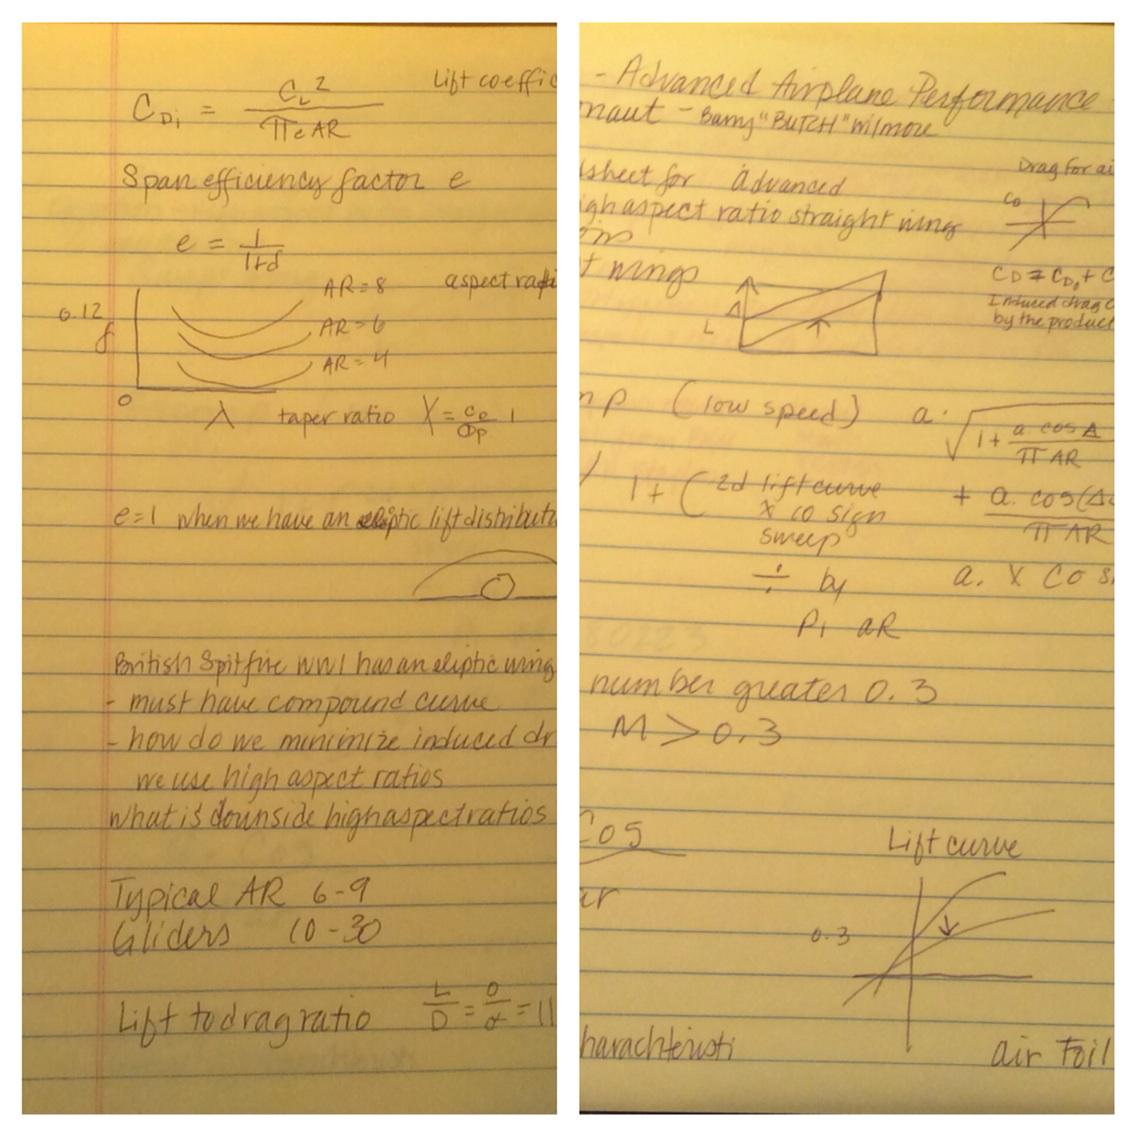 Lift coeffic
C_Di = C_L² / πeAR
Span efficiency factor e
e = 1/1+δ
AR=8
aspect rati
0.12
AR=6
δ
AR=4
0
λ taper ratio
e=1 when we have an eliptic lift distributi
British Spitfire WW1 has an eliptic wing
- must have compound curve
- how do we minimize induced dr
we use high aspect ratios
what is downside high aspect ratios
Typical AR 6-9
Gliders 10-30
Lift to drag ratio L/D =
- Advanced Airplane Performance
naut - Barry "BUTCH" Wilmore
Drag for ai
dsheet for advanced
igh aspect ratio straight wing
t wings
Induced drag c
by the product
L
(low speed) a.
√1+ a. cos Δ / π AR
1+ (2d lift curve
x co sign
sweep
+ a. cos(Δ / π AR
÷ by
a. x Co s
Pi aR
number greater 0.3
M > 0.3
Cos
ar
Lift curve
0.3
harachteristi
air Foil